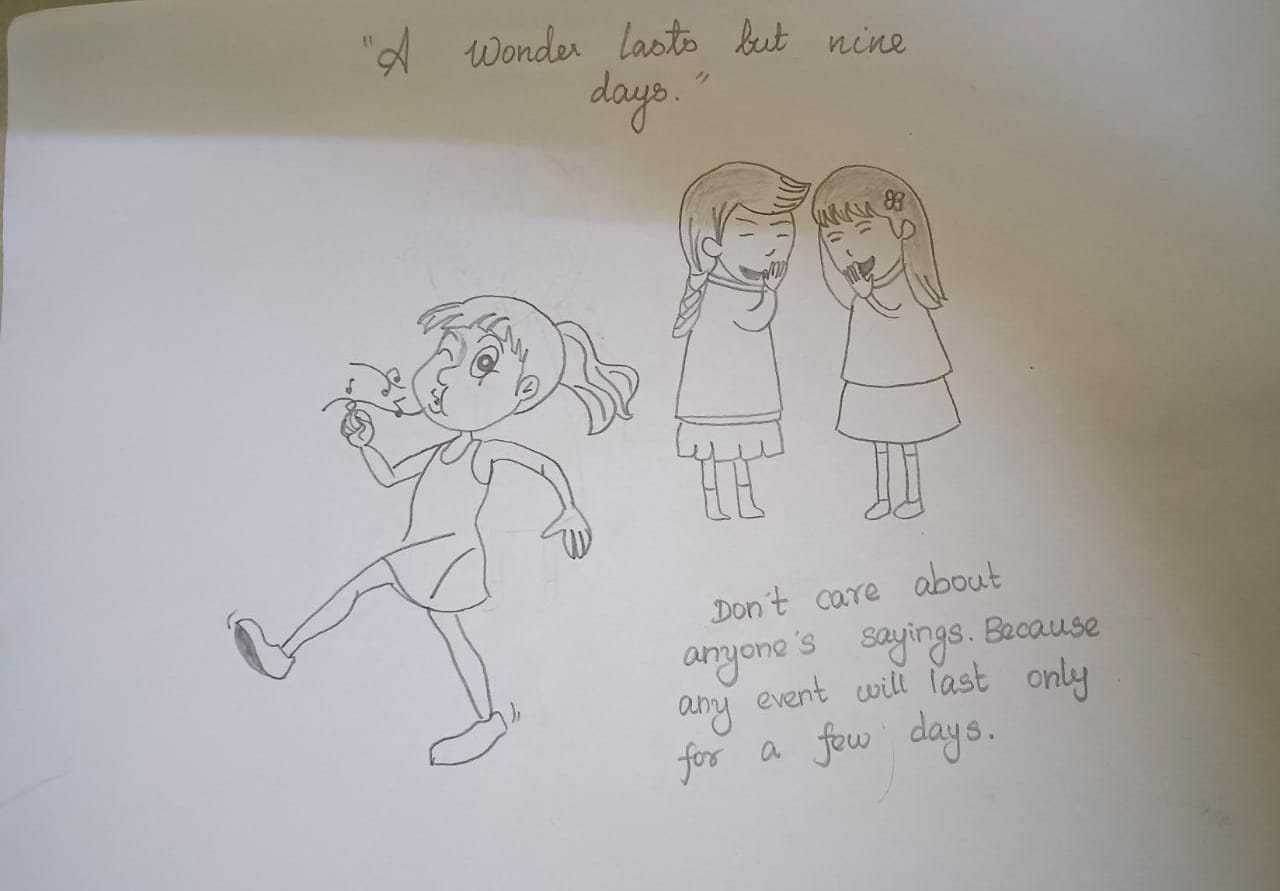 "A wonder lasts but nine
days."
Don't care about
anyone's sayings. Because
any event will last only
for a few days.